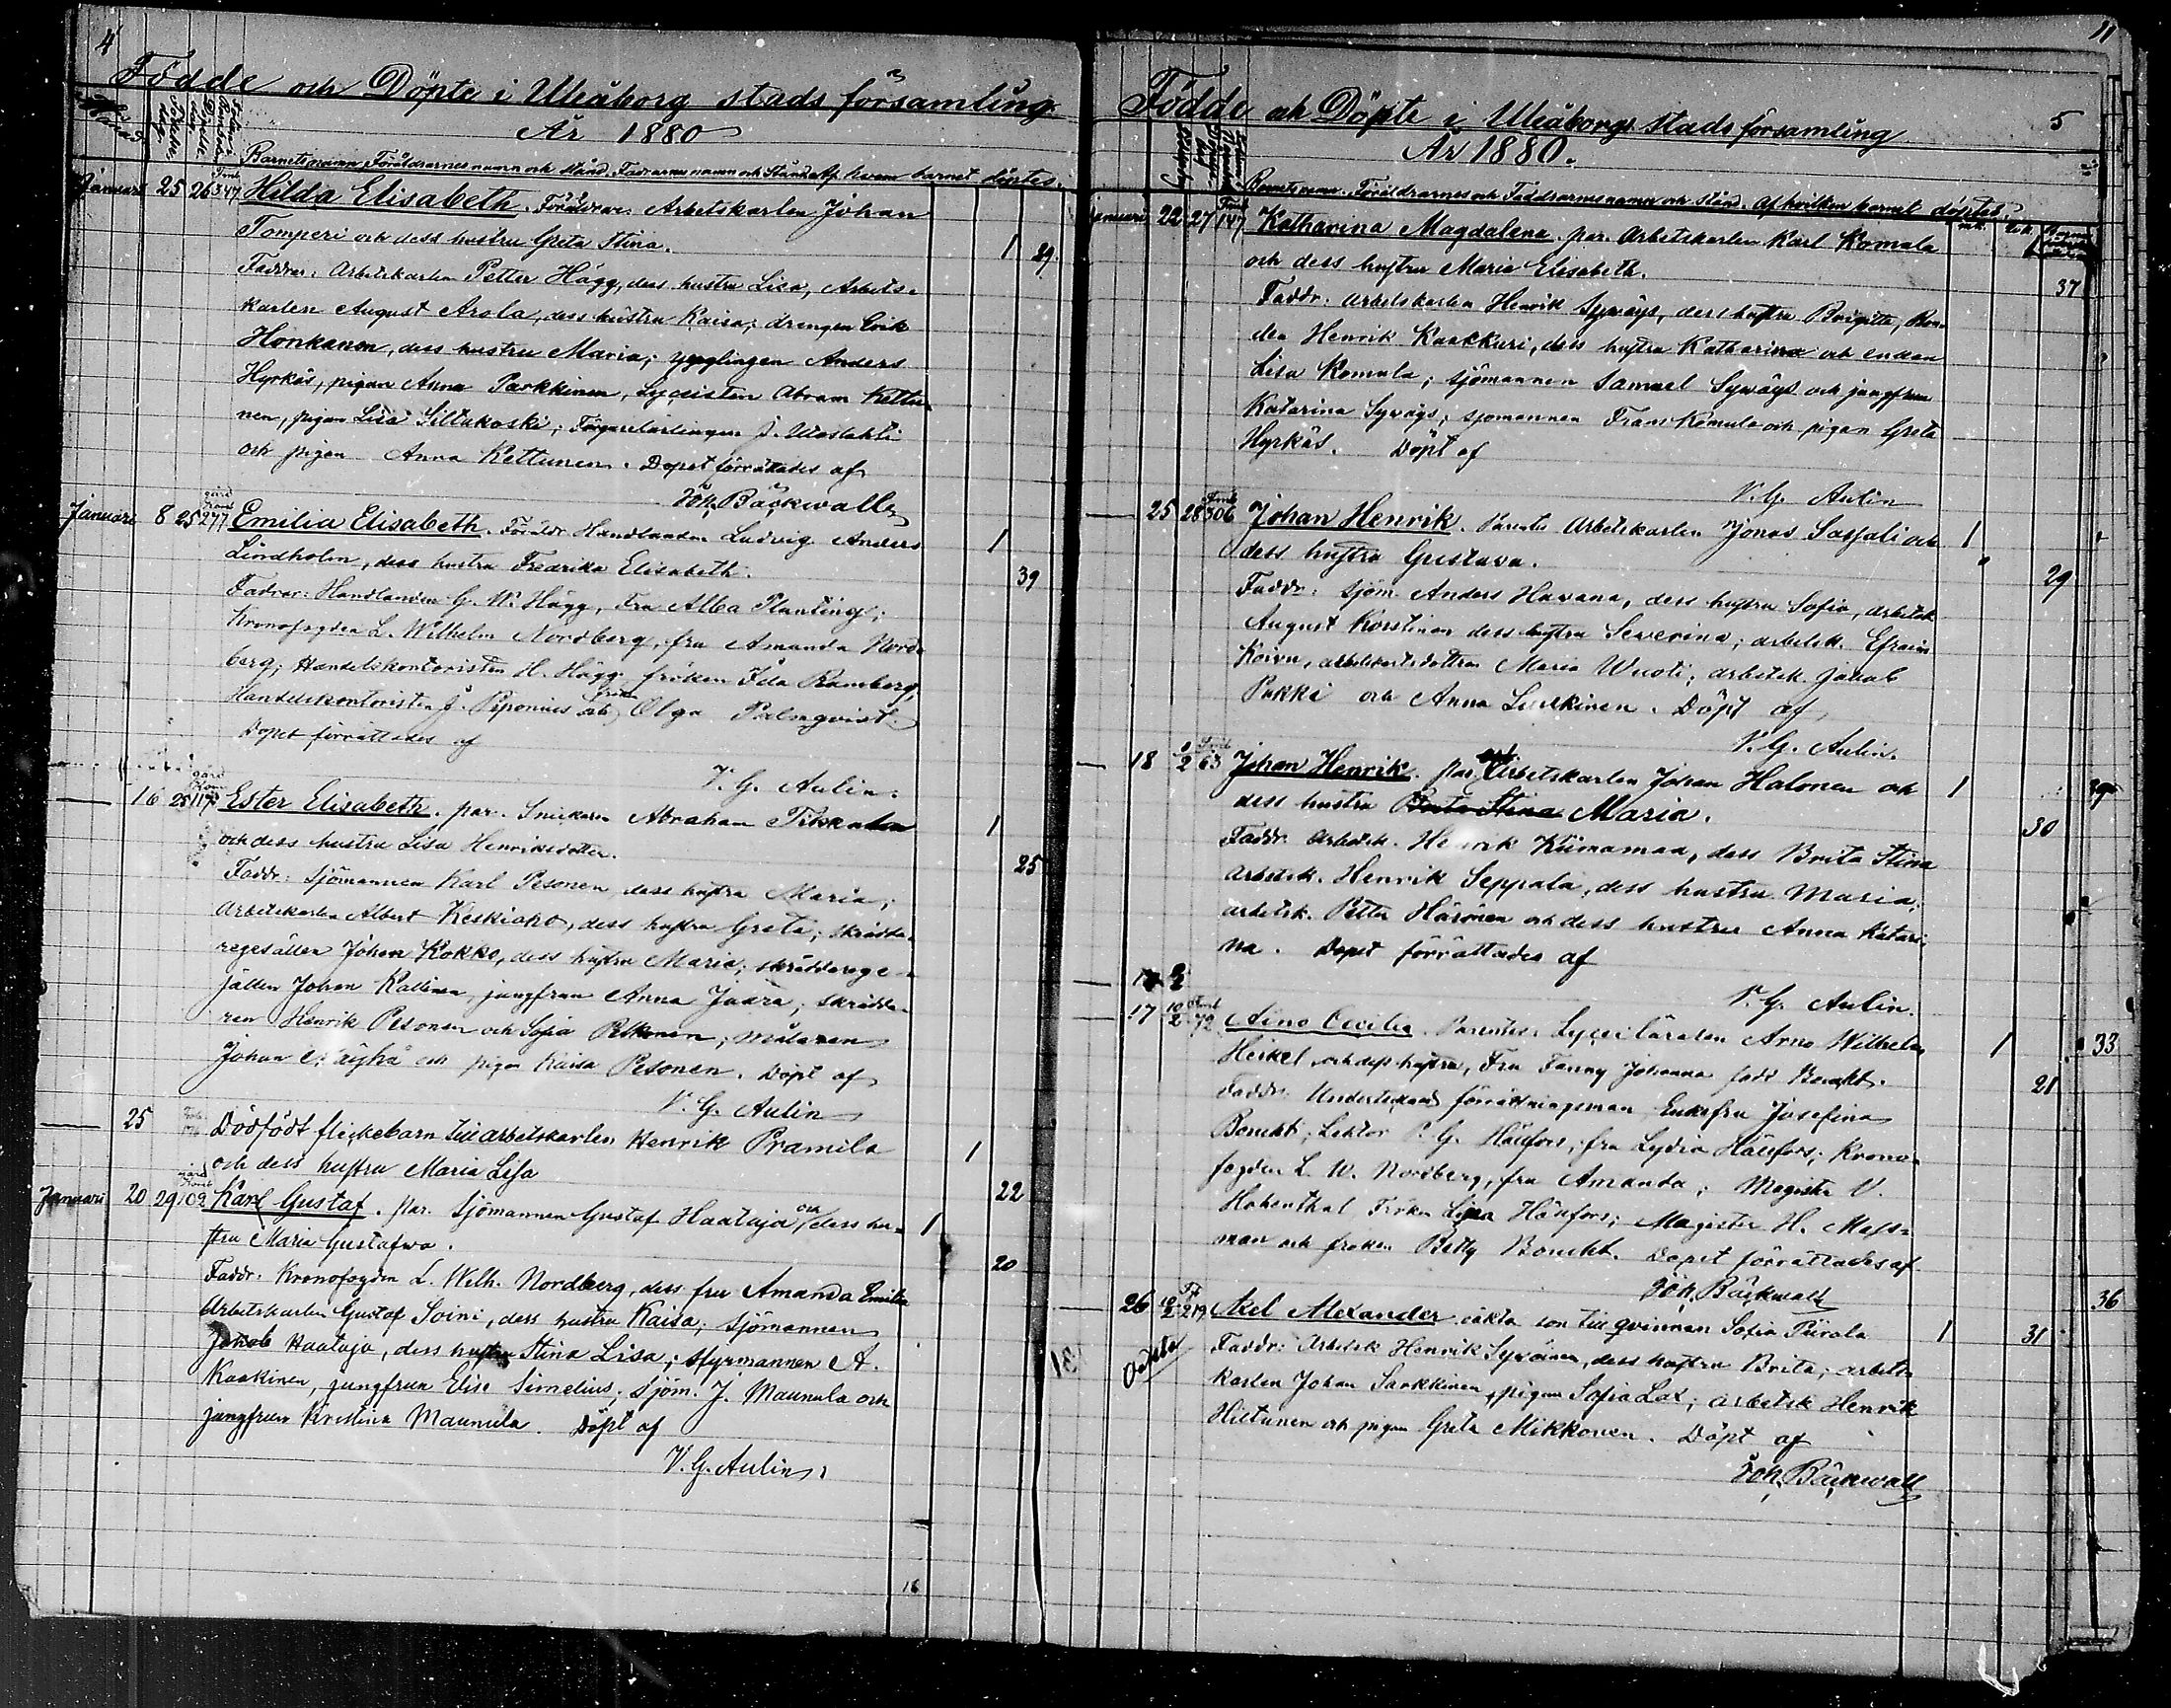 4
Födde och Döpte i Uleåborg stads församling
År 1880
Barnets namn, Föräldrarnes namn och stånd, Faddrarnes namn och Stånd. Af hvem barnet döptes.
Januari 25 26 347 Hilda Elisabeth. Föräldrar Arbetskarlen Johan
Tomperi och dess hustru Greta Stina. 1 29.
Faddrar: Arbetskarlen Petter Hägg, dess hustru Lisa, Arbets-
karlen August Arola, dess hustru Kaisa; drengen Erik
Honkanen, dess hustru Maria; ynglingen Anders
Hyrkäs, pigan Anna Parkkinen, Lyceisten Abram Kettu-
nen, pigan Lisa Siltakoski; J.
och pigan Anna Kettunen. Dopet förrättades af
Joh. Bäckwall
Januari 8 25 277 Emilia Elisabeth. Föräldr. Handlanden Ludvig Anders 1
Lindholm, dess hustru Fredrika Elisabeth. 39
Fadrar: Handlanden G. W. Hägg, Fru Alba Planting;
Kronofogden L. Wilhelm Nordberg, fru Amanda Nord-
berg; Handelskontoristen H. Hägg fröken Ida Ramberg,
Handelskontoristen J. Piponius och fröken Olga Palmqvist.
Dopet förrättades af
V. G. Aulin.
16 25 117 Ester Elisabeth. par. Snickaren Abraham Tikkanen 1
och dess hustru Lisa Henriksdotter. 25
Faddr: Sjömannen Karl Pesonen dess hustru Maria;
Arbetskarlen Albert Keskiaho, dess hustru Greta; skrädda-
regesällen Johan Kokko, dess hustru Maria; skräddarege-
sällen Johan Kallinen, jungfrun Anna Juara; skrädda-
ren Henrik Pesonen och Sofia Pelkonen; målaren
Johan Näyhä och pigan Kaisa Pesonen. Döpt af
V. G. Aulin
25 Dödfödt flickebarn till arbetskarlen Henrik Pramila
och dess hustru Maria Lisa 1 22
Januari 20 29 102 Karl Gustaf. par. Sjömannen Gustaf Haataja och dess hu- 1
stru Maria Gustafwa. 20
Faddr. Kronofogden L. Wilh. Nordberg, dess fru Amanda Emilia
Arbetskarlen Gustaf Soini, dess hustru Kaisa; Sjömannen
Jakob Haataja, dess hustru Stina Lisa; styrmannen A.
Kaakinen, jungfrun Elise Simelius; sjöm. J. Maunula och
jungfrun Kristina Maunula. Döpt af
V. G. Aulin.
16
11
5
Födde och Döpte i Uleåborgs stads församling
År 1880.
Barnets namn. Föräldrarnes och Faddrarnes namn och stånd. Af hvilken barnet döptes.
Januari 22 27 147 Katharina Magdalena. par. Arbetskarlen Karl Komula 1
och dess hustru Maria Elisabeth. 37
Faddr. Arbetskarlen Henrik Syväys, dess hustru Brigitta, Bon-
den Henrik Kaakkuri, dess hustru Katharina och enkan
Lisa Komula; sjömannen Samuel Syväys och jungfrun
Katarina Syväys; sjömannen Frans Komula och pigan Greta
Hyrkäs. Döpt af
V. G. Aulin
25 28 306 Johan Henrik. Parentes Arbetskarlen Jonas Sassali och 1
dess hustru Gustava. 29
Faddr: Sjöm. Anders Havana, dess hustru Sofia, arbetsk.
August Korstinen dess hustru Severina; arbetsk. Efraim
Koivu, arbetskarlsdottren Maria Wuoti; arbetsk. Jakob
Pukki och Anna Leskinen. Döpt af
V. G. Aulin.
18 2 63 Johan Henrik. par. Arbetskarlen Johan Halonen och 1
dess hustru Brita Stina Maria. 30
Faddr. Arbetsk. Henrik Kiimamaa, dess Brita Stina
Arbetsk. Henrik Seppälä, dess hustru Maria;
arbetsk. Petter Härönen och dess hustru Anna Katari-
na. Dopet förrättades af
V. G. Aulin.
17 10/2 72 Aino Cecilia. Parentes. Lyceiläraren Arno Wilhelm 1 33
Heikel och dess hustru, Fru Fanny Johanna född Bonsdt. 21
Faddr: Undertecknad förrättningsman Enkefru Josefina
Lektor P. G. Häufors, fru Lydia Häufors; Krono-
fogden L. W. Nordberg, fru Amanda; Magister V.
Hohenthal Fröken Lina Häufors; Magister H. Mell-
man och fröken Betty Dopet förrättades af
Joh. Bäckwall
36
26 10/2 219 Axel Alexander oäkta son till qvinnan Sofia Piirola 1 31
Oäkta Faddr: Arbetsk Henrik Syvänen, dess hustru Brita; arbets-
karlen Johan Sarkkinen, pigan Sofia Lax; arbetsk Henrik
Hiltunen och pigan Greta Mikkonen. Döpt af
Joh. Bäckwall